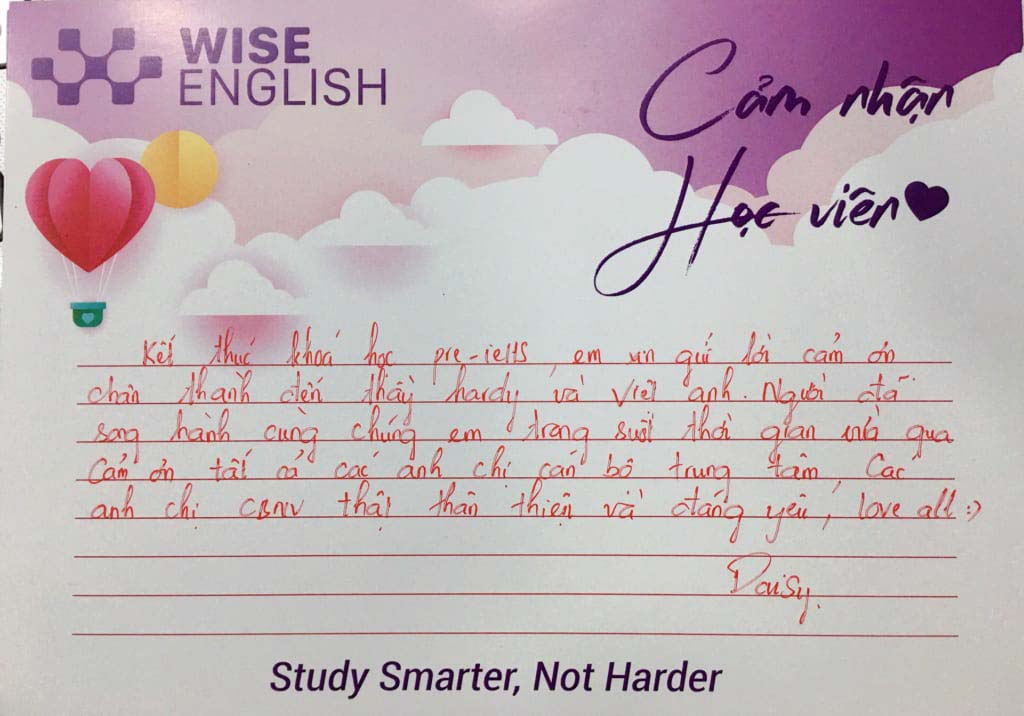 WISE
ENGLISH
Cảm nhận
Học viên
Kết thúc khoá học pre-ielts, em xin gửi lời cảm ơn
chân thành đến thầy hardy và Việt anh. Người đã
song hành cùng chúng em trong suốt thời gian vừa qua
Cảm ơn tất cả các anh chị cán bộ trung tâm, Các
anh chị CBNV thật thân thiện và đáng yêu, love all :)
Daisy.
Study Smarter, Not Harder